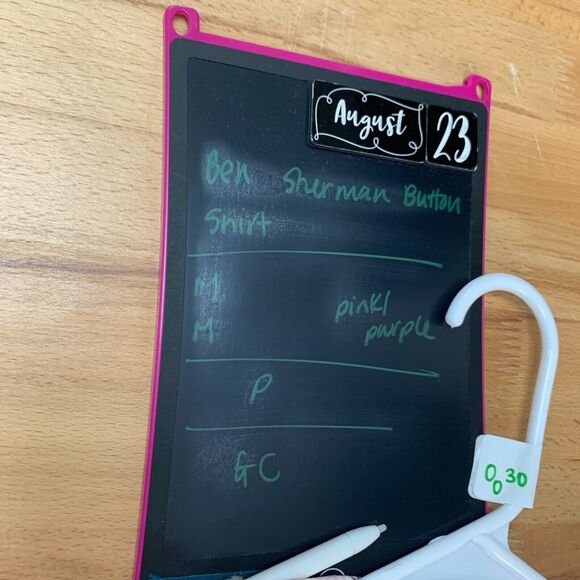 August 23
Ben Sherman Button
Shirt
M
M
pink/
purple
P
GC
0030